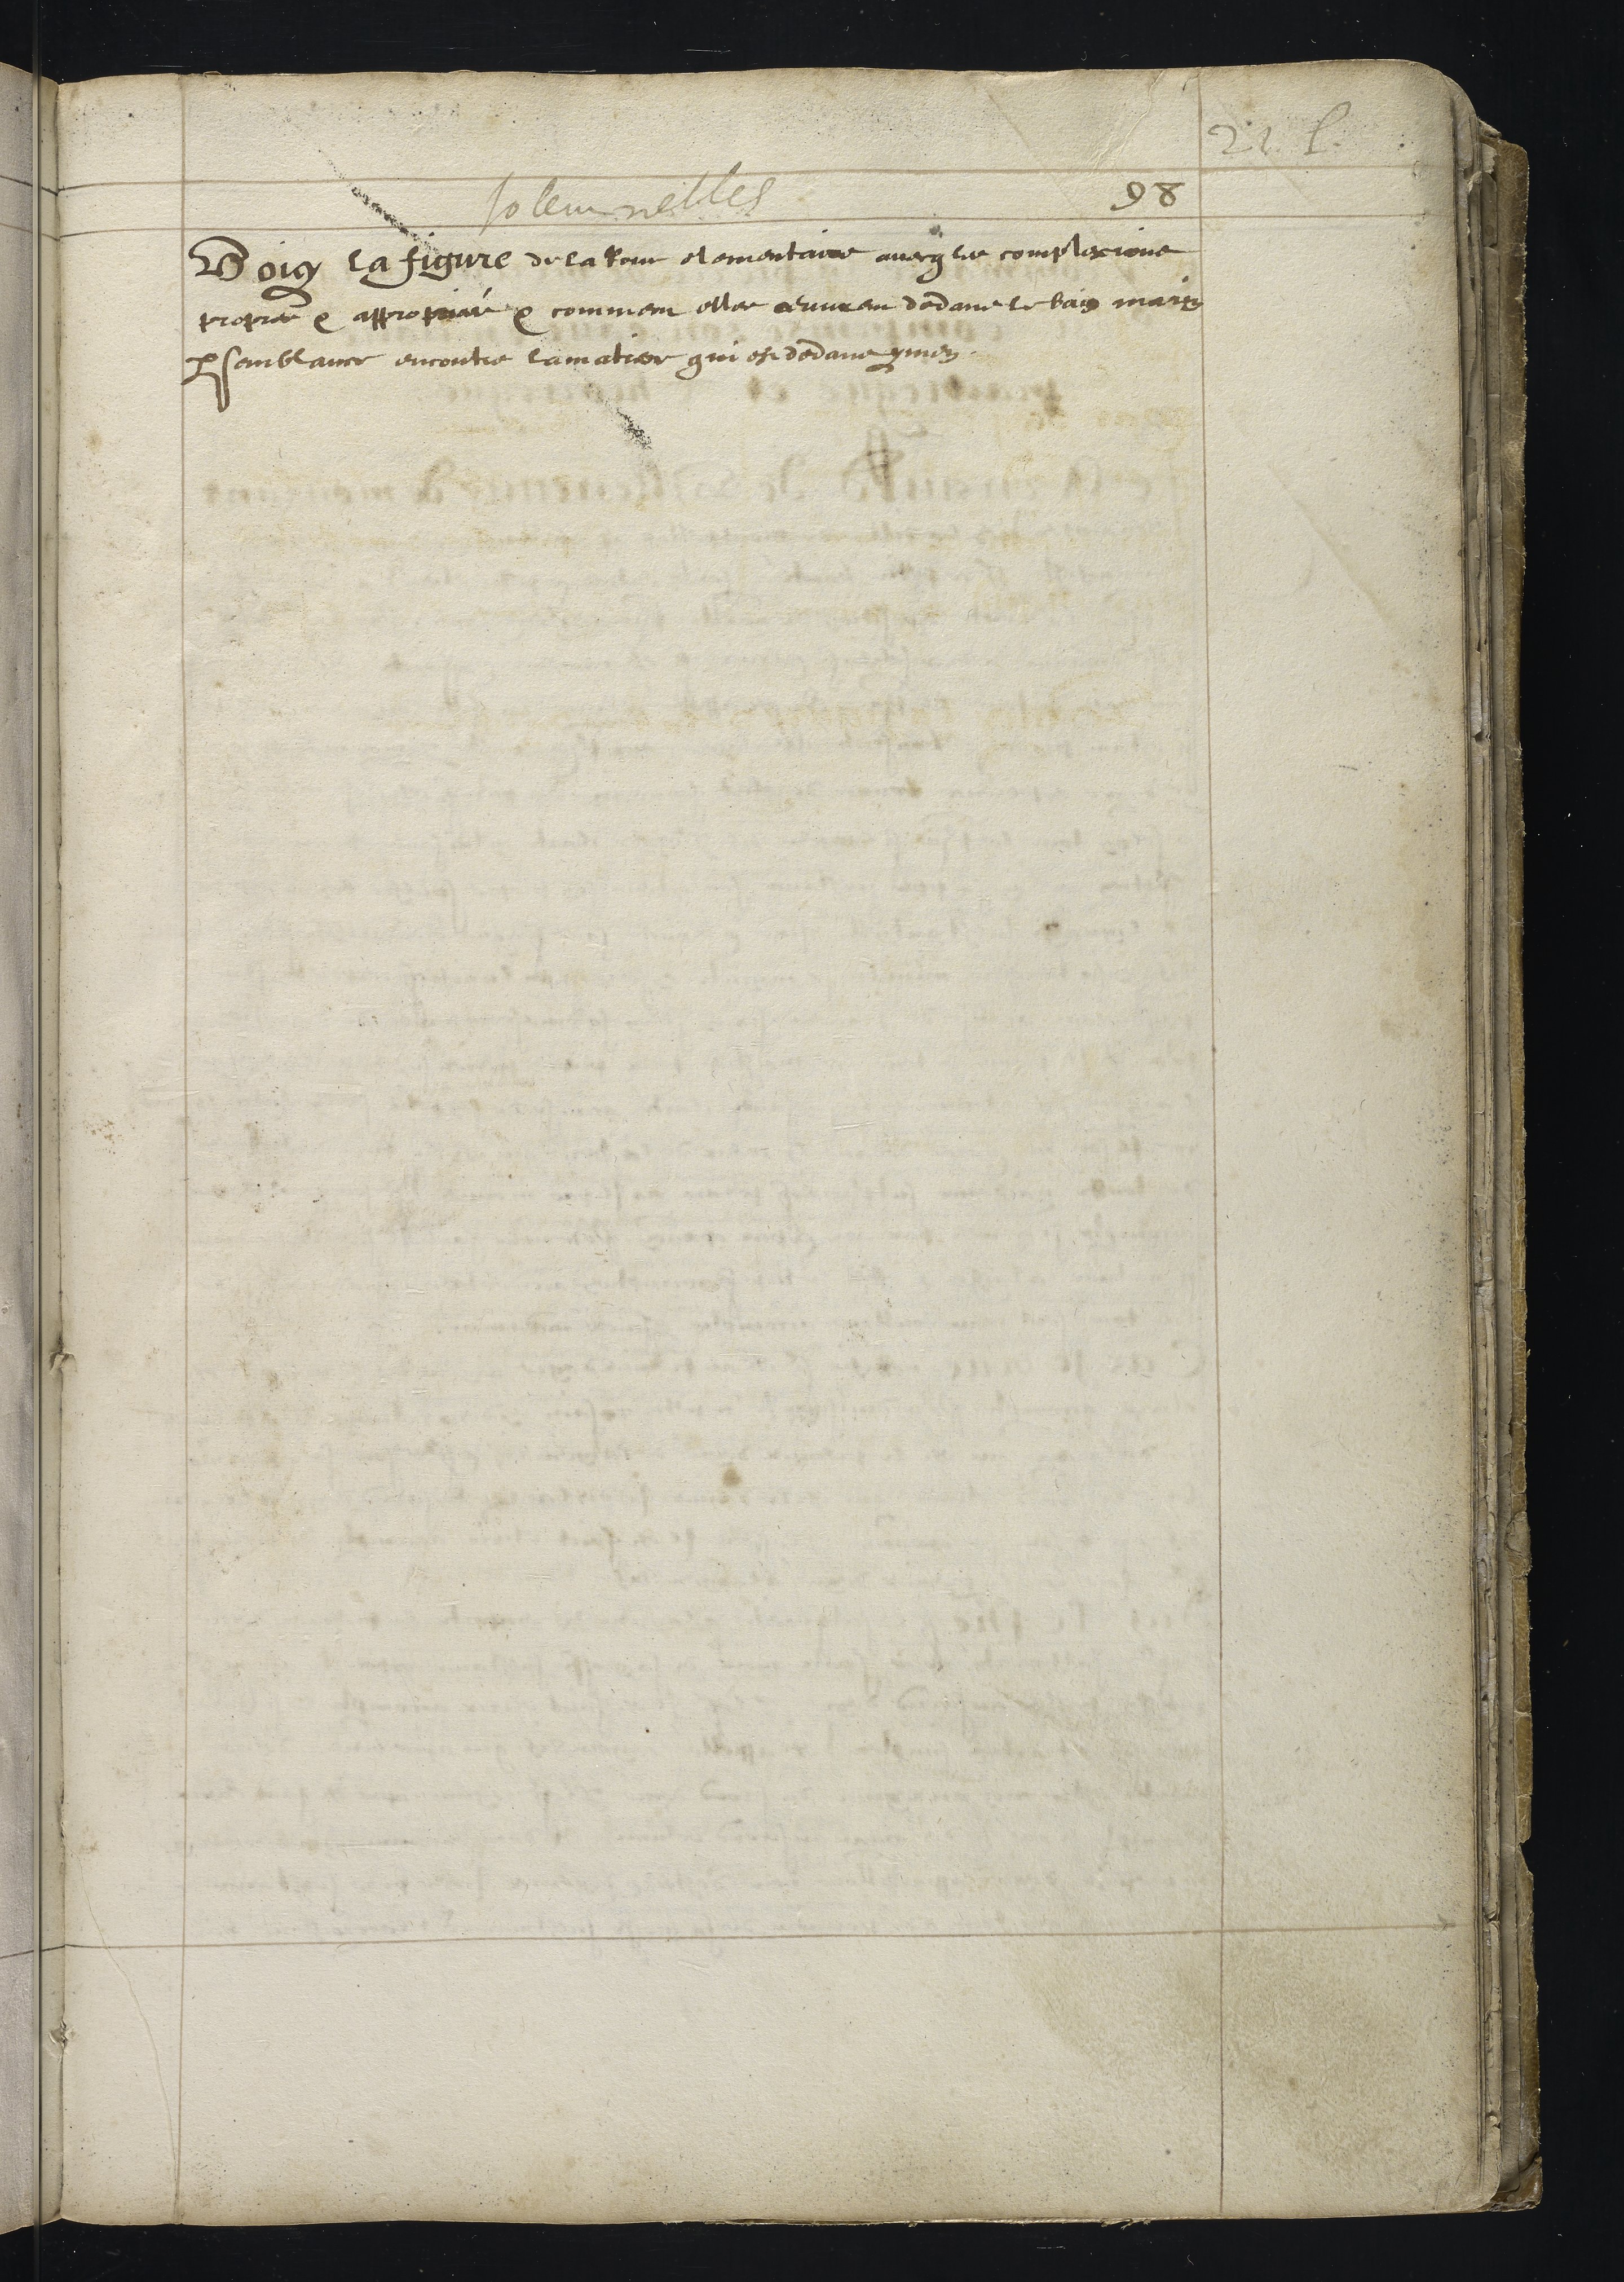 21. l.
solemnelles
98
Voicy la figure de la Roue elementaire avecq les complexions
propres & appropriés & comment elles œuvrent dedans le bain marie
p semblance encontre la matiere qui est dedans